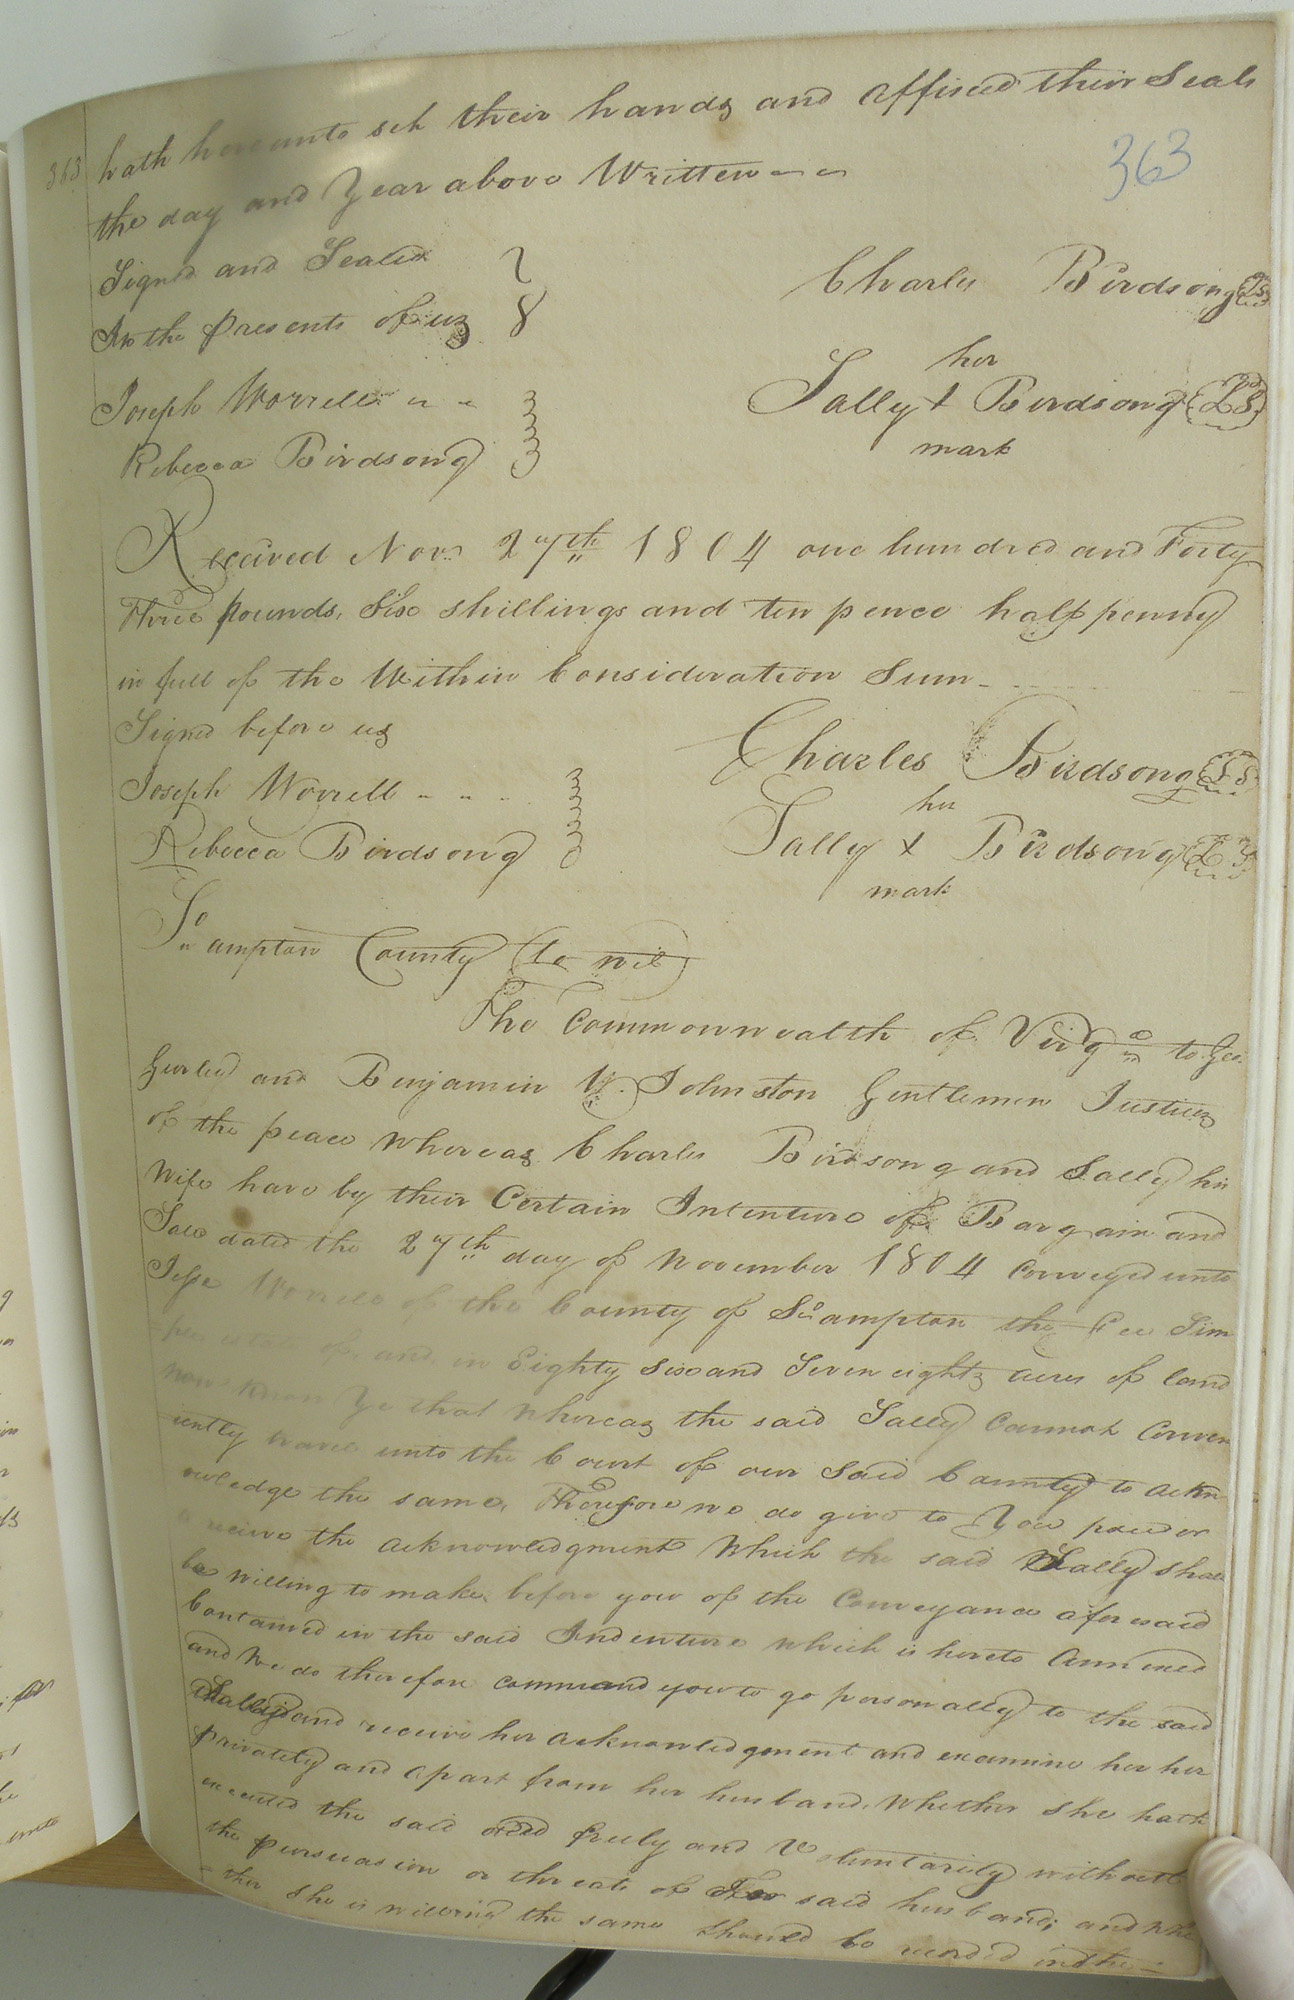 363
363
hath hereunto set their hands and affixed their Seals
the day and Year above Written
Signed and Sealed
In the presents of us
Charles Birdsong LS
Joseph Worrell
her
Sally + Birdsong LS
mark
Rebecca Birdsong
Received Novr 27th 1804 one hundred and Forty
Three pounds, Six shillings and ten pence half penny
in full of the Within Consideration Sum
Signed before us
Charles Birdsong LS
Joseph Worrell
her
Sally + Birdsong LS
mark
Rebecca Birdsong
Soampton County (to wit)
The Commonwealth of Virga to Geo.
Gurley and Benjamin W. Johnston Gentlemen Justices
of the peace Whereas Charles Birdsong and Sally his
Wife have by their Certain Intenture of Bargain and
Sale dated the 27th day of November 1804 Conveyed unto
Jesse Worrell of the County of Soampton the Fee Sim
ple estate of, and in Eighty six and Seven eights acres of land
now Know Ye that Whereas the said Sally Cannot Conven
iently travel unto the Court of our said County to ackn
owledge the same, Therefore we do give to You power
to receive the acknowledgment Which the said Sally shall
be willing to make before you of the Conveyance aforesaid
Contained in the said Indenture which is hereto Annexed
and We do therefore command you to go personally to the said
Sally and receive her acknowledgment and examine her her
privately and apart from her husband, Whether She hath
executed the said deed freely and Voluntarily without
the persuasion or threats of her said husband; and Whe
ther she is willing the same should be recorded in the